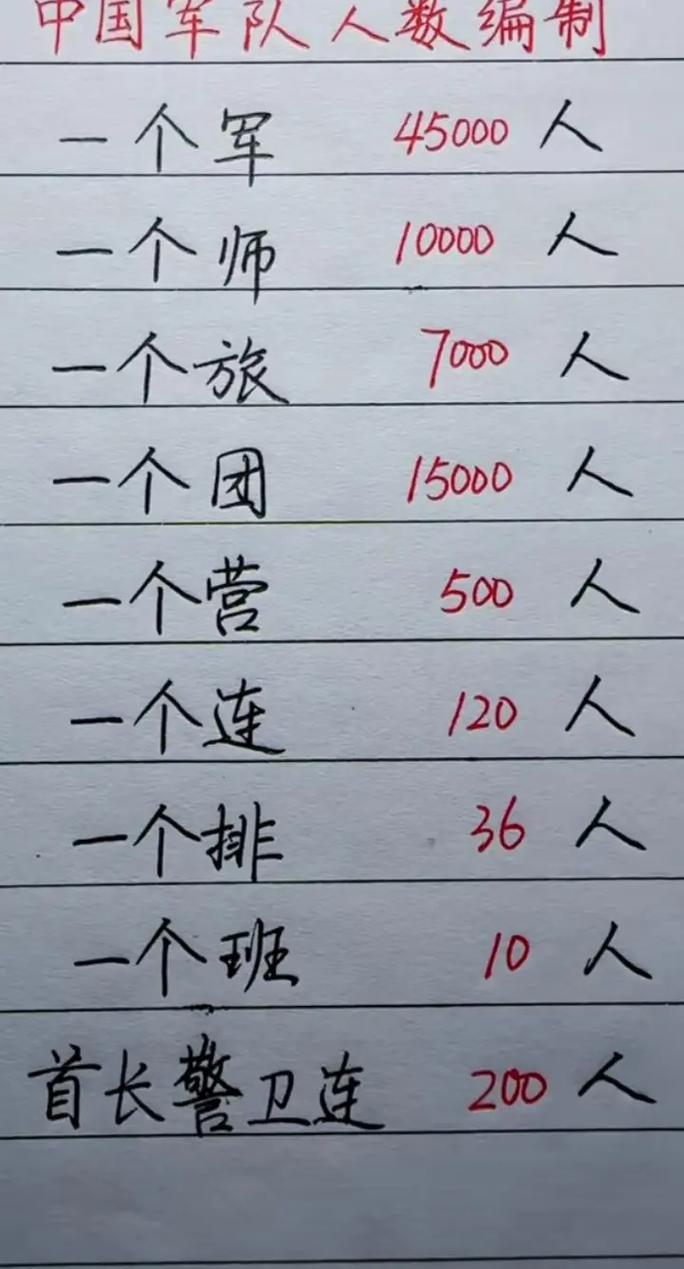 中国军队人数编制
一个军 45000 人
一个师 10000 人
一个旅 7000 人
一个团 15000 人
一个营 500 人
一个连 120 人
一个排 36 人
一个班 10 人
首长警卫连 200 人